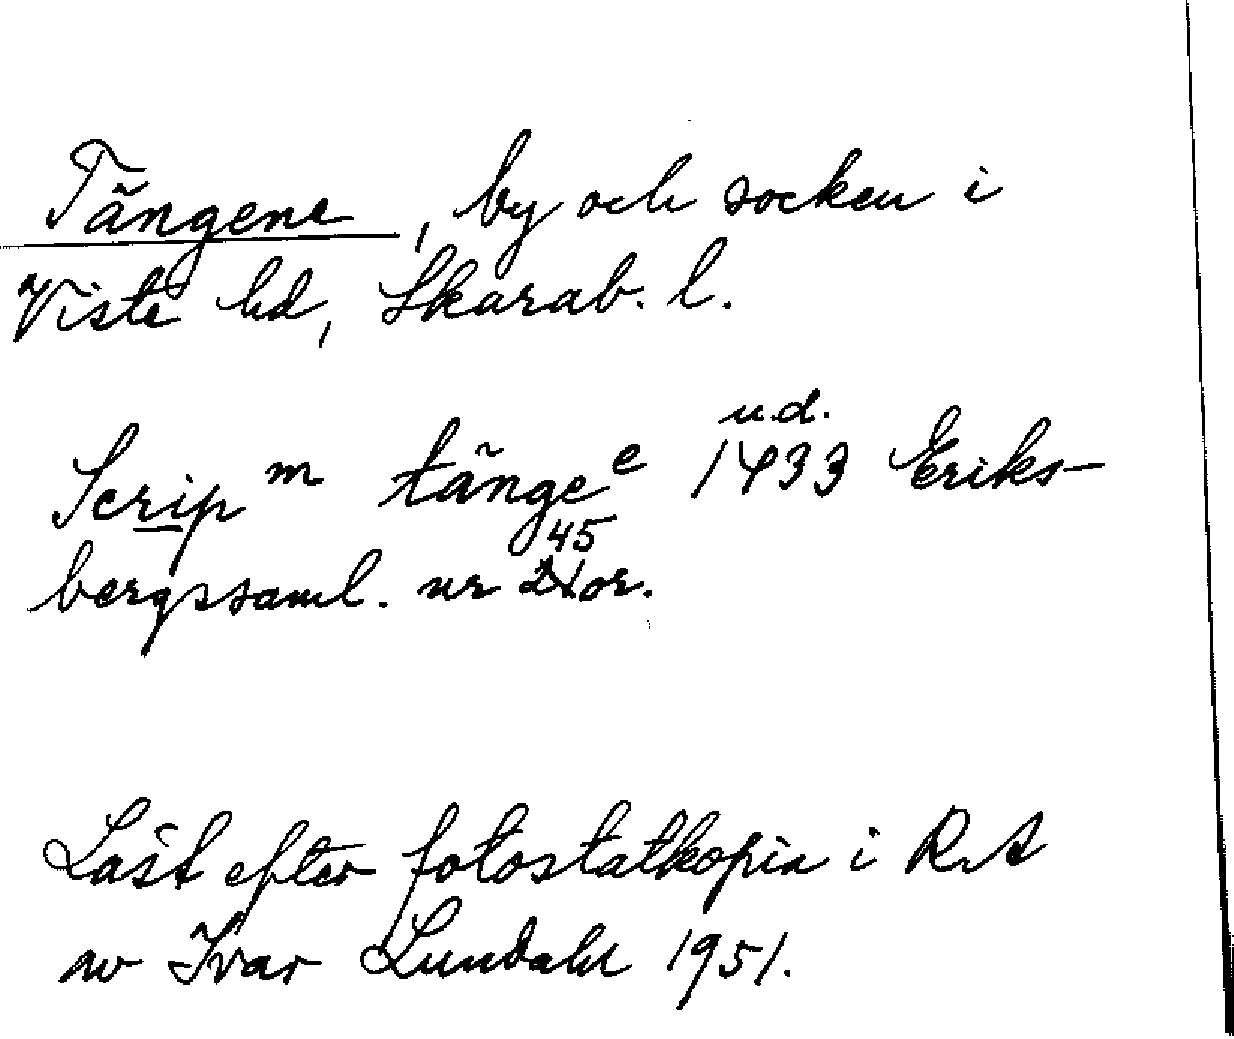 Tängene, by och socken i
Viste hd, Skarab. l.
u.d.
Scrip m tänge e 1433 Eriks-
45
bergssaml. nr or.
Läst efter fotostatkopia i RA
av Ivar Lundahl 1951.